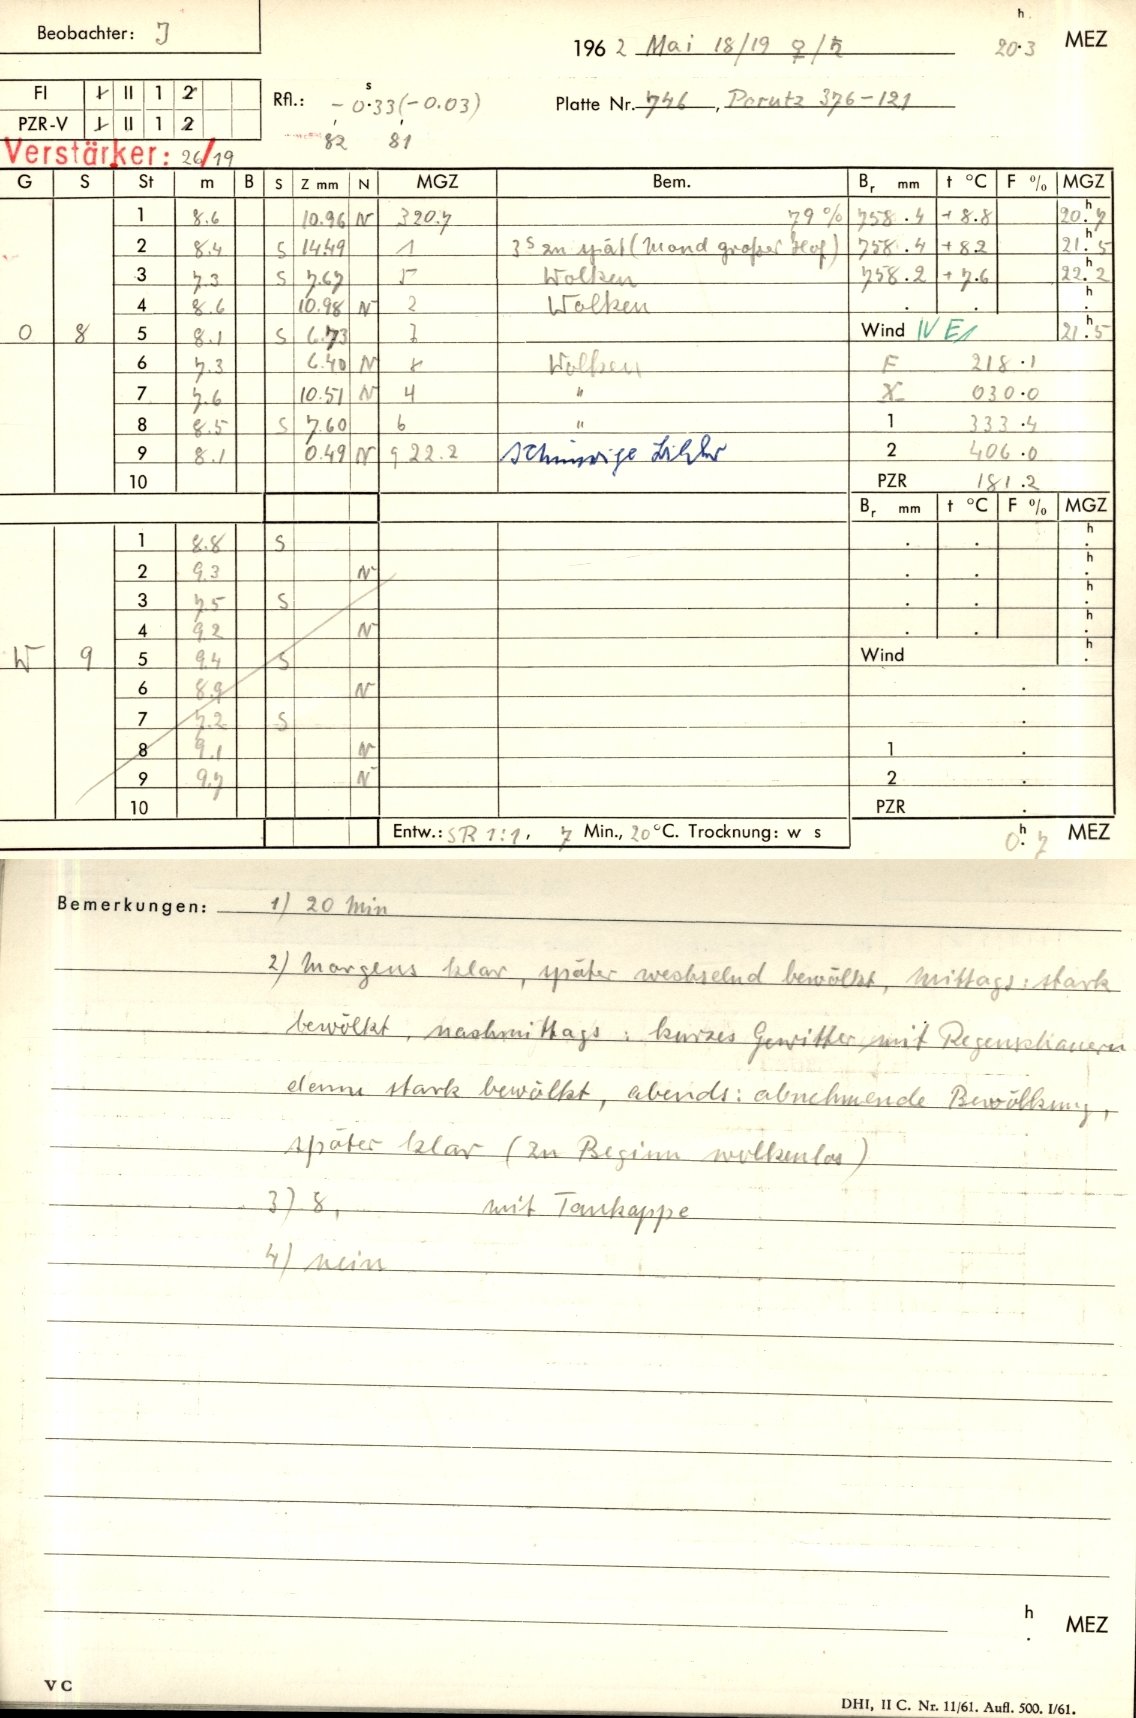 Beobachter: J
1962 Mai 18/19 ♀/♄ 20h.3 MEZ
FI I II 1 2
PZR-V I II 1 2
Rfl.: -0s.33(-0.03)
82 81
Platte Nr. 746, Perutz 376-121
Verstärker: 26/19
G S St m B S Z mm N MGZ Bem. Br mm t °C F % MGZ
1 8.6 10.96 N 3 20.7 79% 758.4 +8.8 20h.7
2 8.4 S 14.49 1 3s zu spät (Mond großer Hof) 758.4 +8.2 21h.5
3 7.3 S 7.67 5 Wolken 758.2 +7.6 22h.2
4 8.6 10.98 N 2 Wolken . . h.
O 8 5 8.1 S 6.73 7 Wind IV E 21h.5
6 7.3 6.40 N 8 Wolken F 218.1
7 7.6 10.51 N 4 " X 030.0
8 8.5 S 7.60 6 " 1 333.4
9 8.1 0.49 N 9 22.2 2 406.0
10 PZR 181.2
Br mm t °C F % MGZ
1 8.8 S . . h.
2 9.3 N . . h.
3 7.5 S . . h.
4 9.2 N . . h.
W 9 5 9.4 S Wind h.
6 8.9 N .
7 7.2 S .
8 9.1 N 1 .
9 9.7 N 2 .
10 PZR .
Entw.: SR 1:1, 7 Min., 20°C. Trocknung: w s 0h.7 MEZ
Bemerkungen: 1) 20 Min
2) Morgens klar, später wechselnd bewölkt, mittags: stark
bewölkt, nachmittags: kurzes Gewitter mit Regenschauern
denn stark bewölkt, abends: abnehmende Bewölkung,
später klar (zu Beginn wolkenlos)
3) 8, mit Taukappe
4) nein
h. MEZ
V C
DHI, II C. Nr. 11/61. Aufl. 500. I/61.